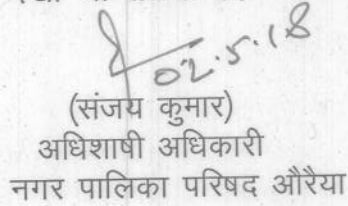 02.5.18
(संजय कुमार)
अधिशाषी अधिकारी
नगर पालिका परिषद औरैया